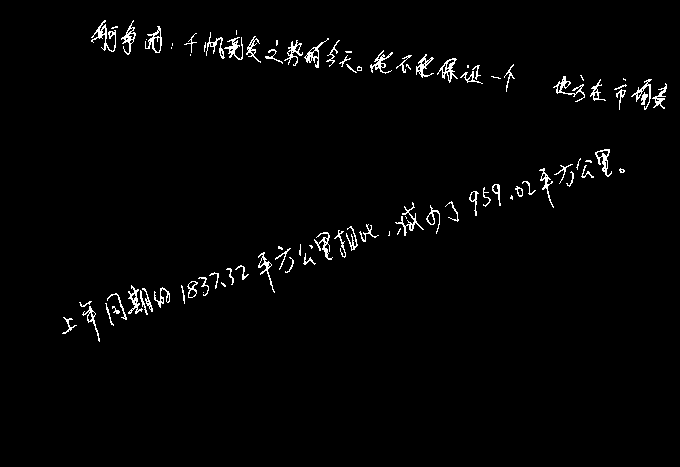 舸争流,千帆竞发之势的今天。能不能保证一个 地方在市场竞
上年同期的1837.32平方公里相比,减少了959.02平方公里。